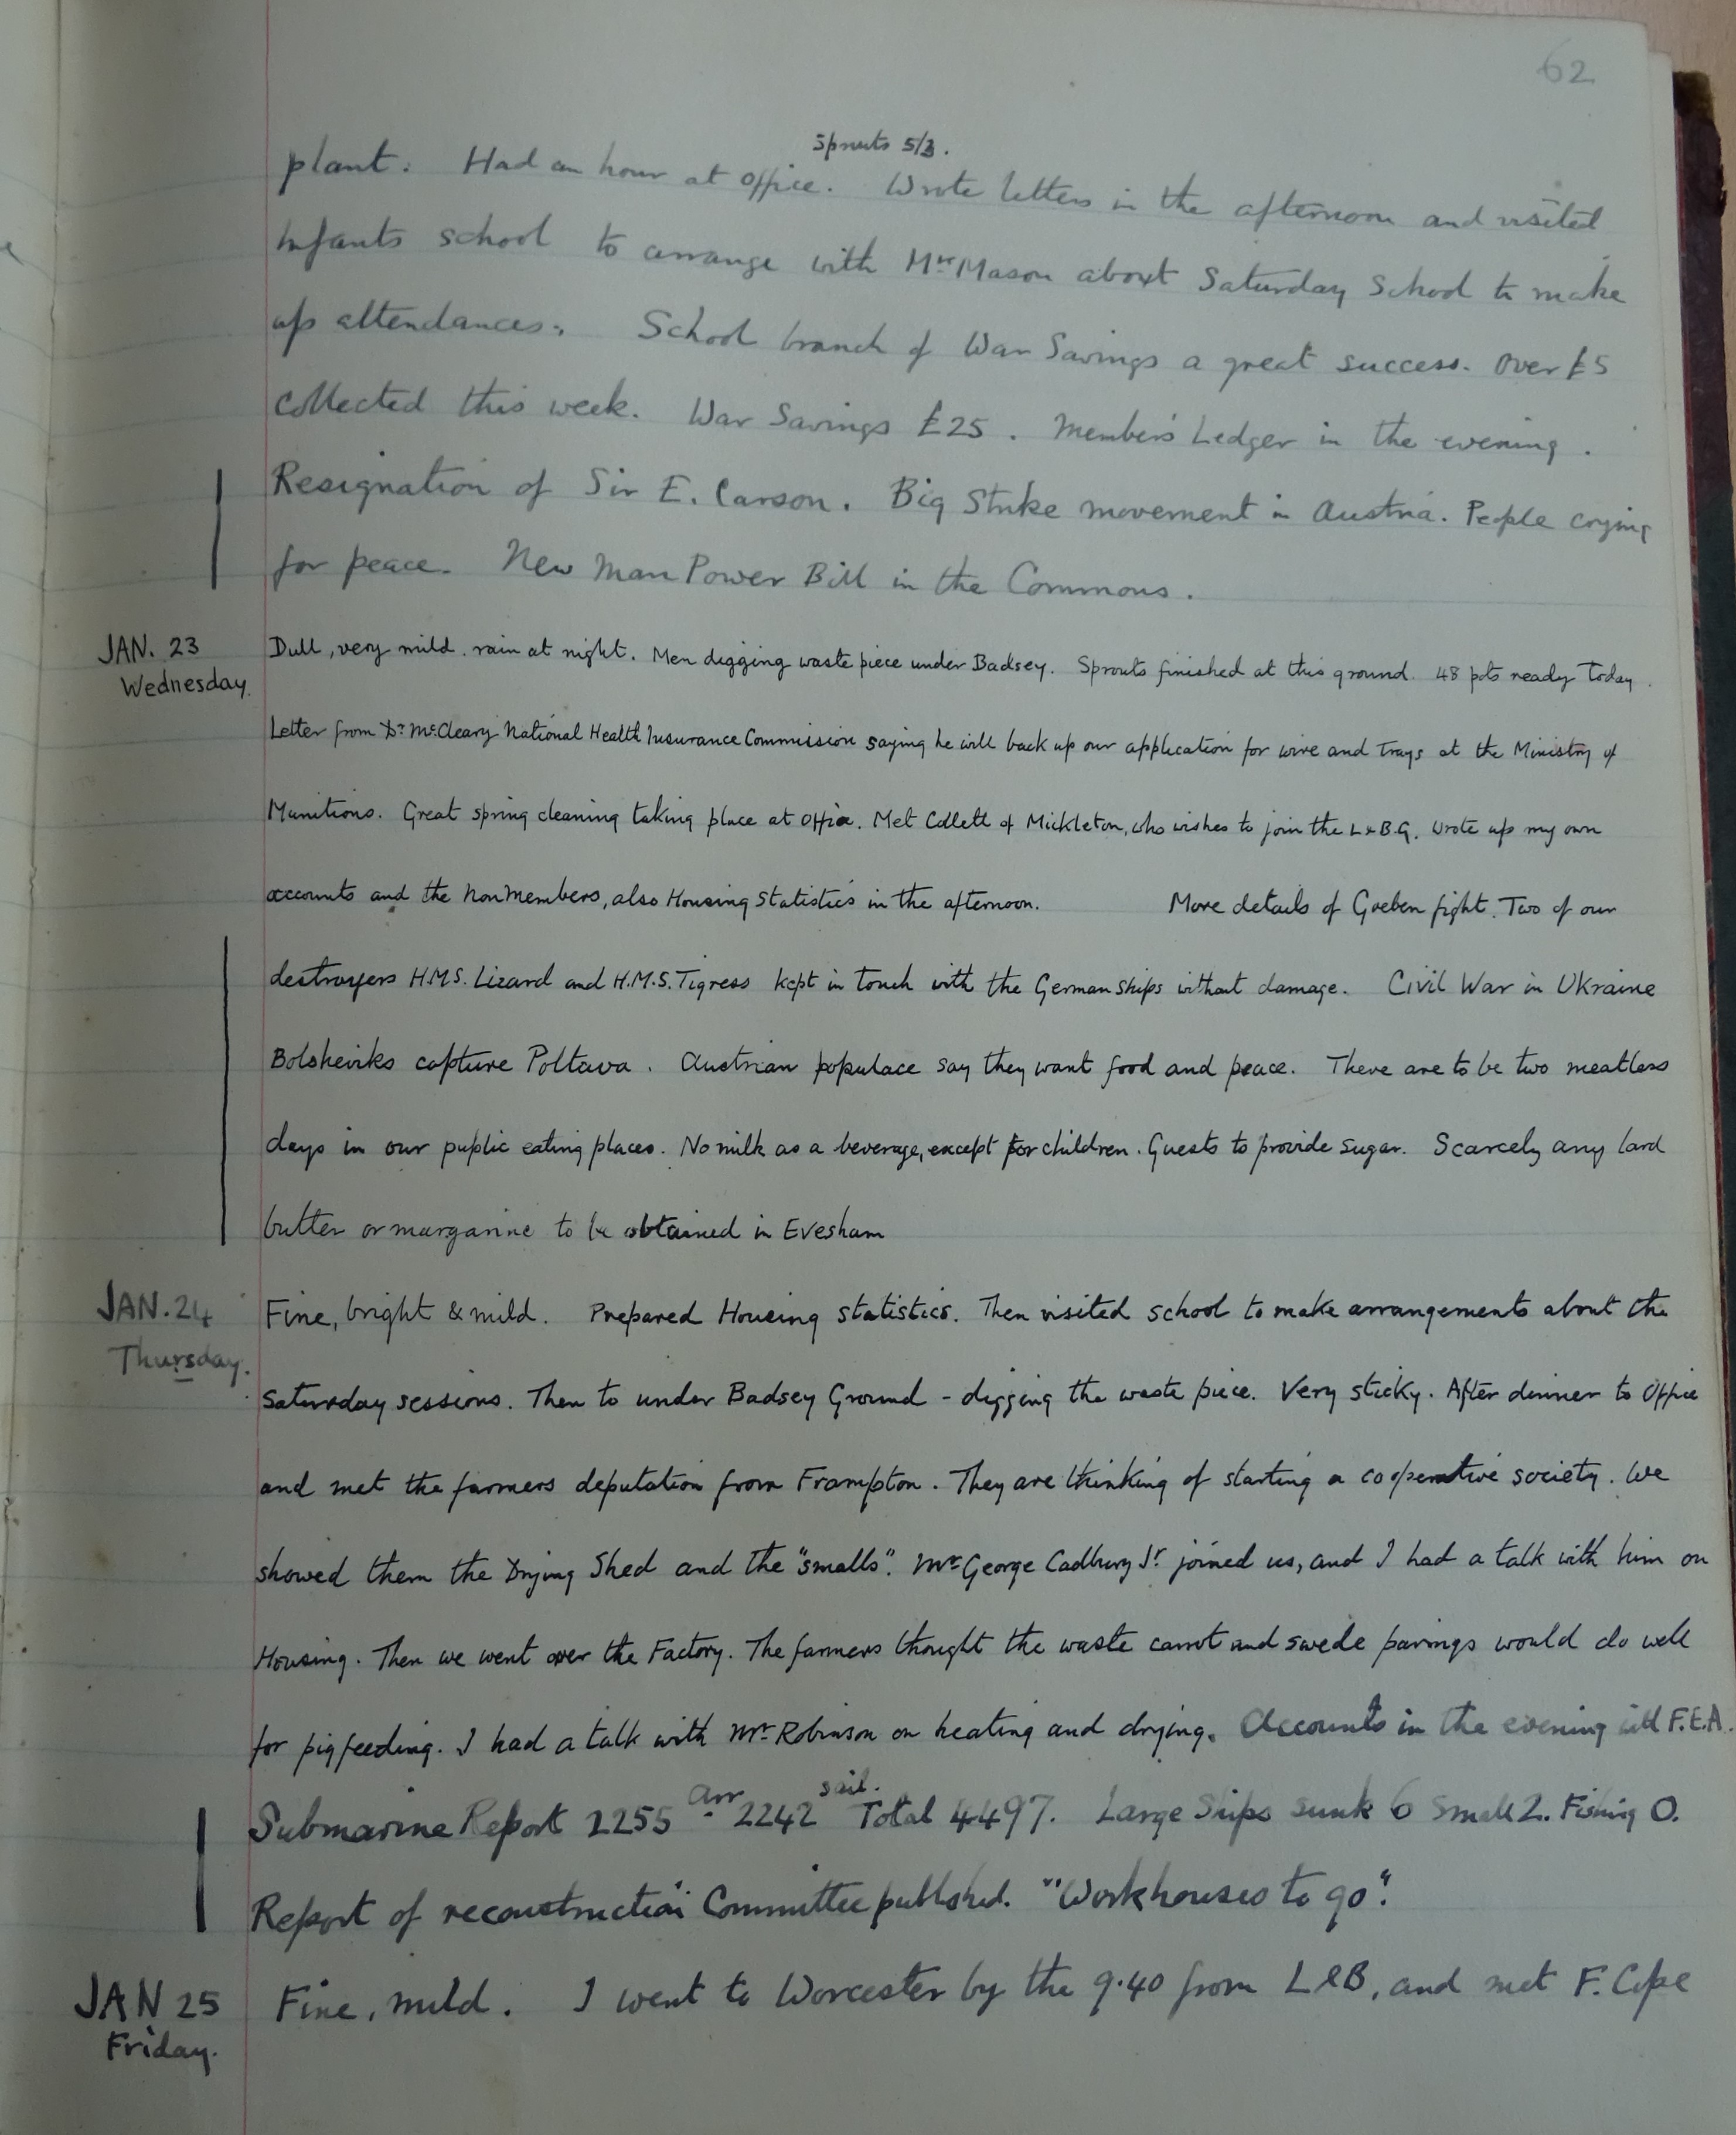 62
Sprouts 5/3.
plant. Had an hour at office. Wrote letters in the afternoon and visited
Infants school to arrange with Mrs Mason about Saturday School to make
up attendances. School branch of War Savings a great success. Over £5
collected this week. War Savings £25. Members' Ledger in the evening.
Resignation of Sir E. Carson. Big Strike movement in Austria. People crying
for peace. New Man Power Bill in the Commons.
JAN. 23 Dull, very mild. rain at night. Men digging waste piece under Badsey. Sprouts finished at this ground. 48 pots ready today.
Wednesday.
Letter from Dr McCleary National Health Insurance Commission saying he will back up our application for wire and trays at the Ministry of
Munitions. Great spring cleaning taking place at Office. Met Collett of Mickleton, who wishes to join the L & B.G. Wrote up my own
accounts and the Non Members, also Housing Statistics in the afternoon. More details of Goeben fight. Two of our
destroyers H.M.S. Lizard and H.M.S. Tigress kept in touch with the German ships without damage. Civil War in Ukraine
Bolsheviks capture Poltava. Austrian populace say they want food and peace. There are to be two meatless
days in our public eating places. No milk as a beverage, except for children. Guests to provide sugar. Scarcely any lard
butter or margarine to be obtained in Evesham
JAN. 24 Fine, bright & mild. Prepared Housing statistics. Then visited school to make arrangements about the
Thursday.
Saturday sessions. Then to under Badsey Ground - digging the waste piece. Very sticky. After dinner to Office
and met the farmers deputation from Frampton. They are thinking of starting a cooperative society. We
showed them the Drying Shed and the "smalls". Mr George Cadbury Jr joined us, and I had a talk with him on
Housing. Then we went over the Factory. The farmers thought the waste carrot and swede parings would do well
for pigfeeding. I had a talk with Mr Robinson on heating and drying. Accounts in the evening with F.E.A.
Submarine Report 2255 arr. 2242 sail. Total 4497. Large Ships sunk 6 Small 2. Fishing 0.
Report of reconstruction Committee published. "Workhouses to go".
JAN 25 Fine, mild. I went to Worcester by the 9.40 from L & B, and met F. Cope
Friday.